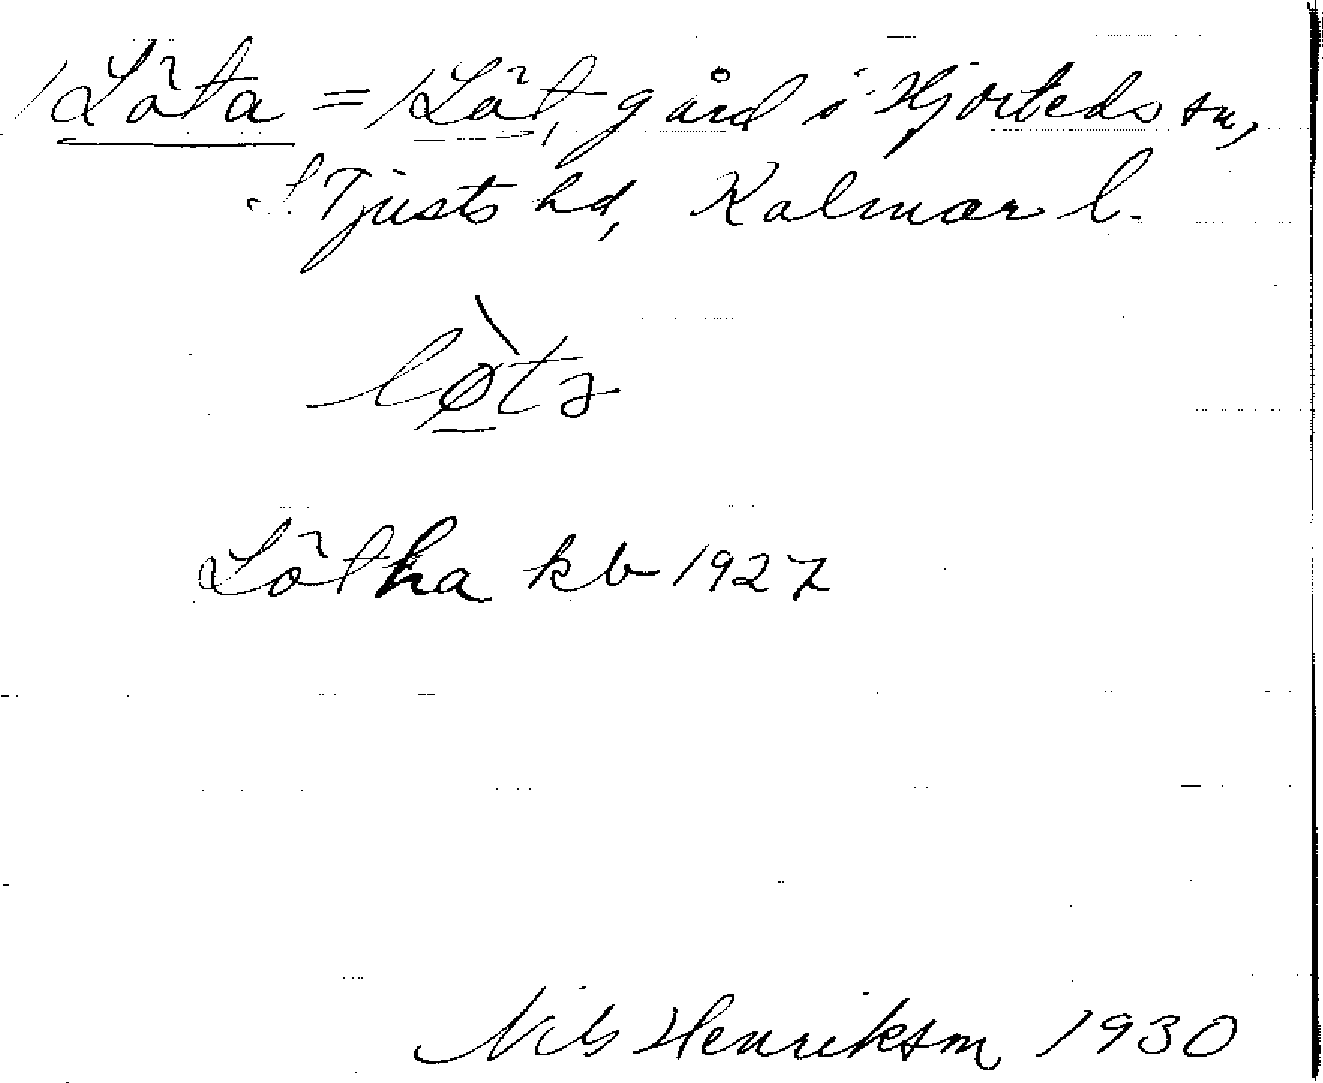 /Löta = /Löt, gård i Hjorteds sn,
S. Tjusts hd, Kalmar l.
lø̀ta
Lötha kb 1927
Nils Henrikson 1930